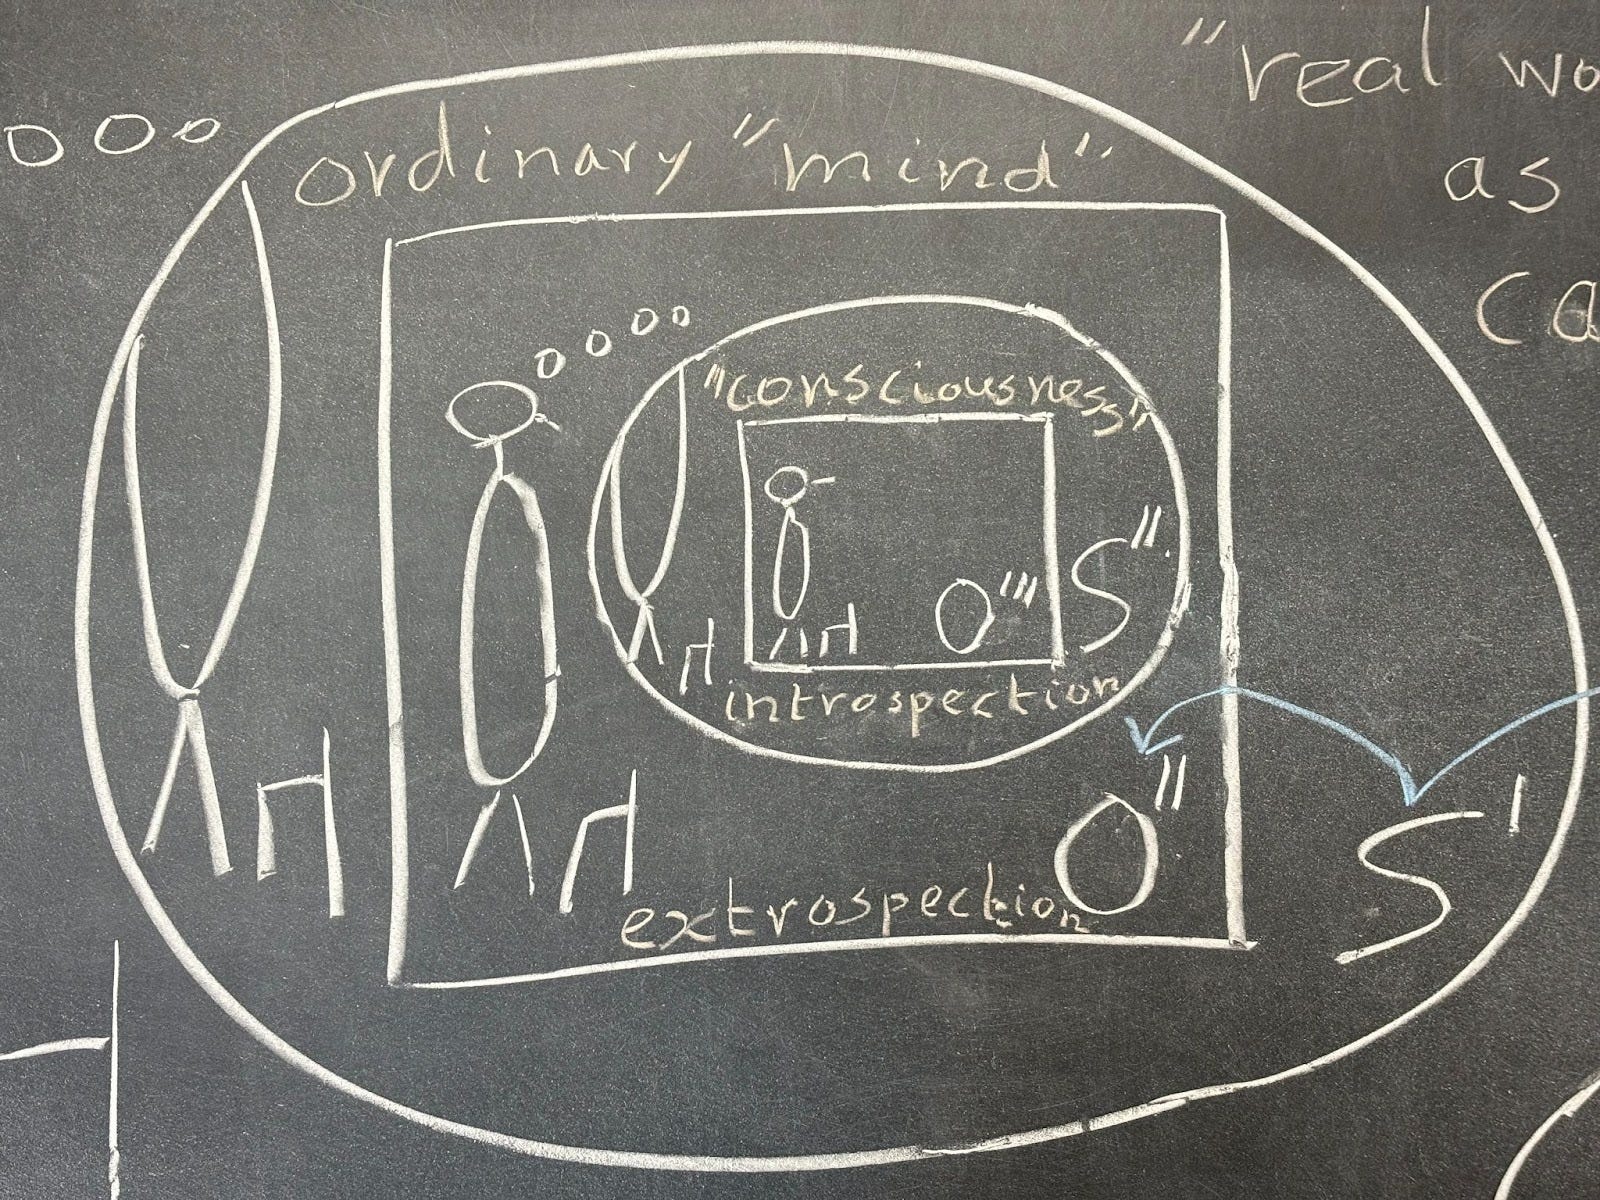 "real wo
as
ca
ordinary "mind"
"consciousness"
S"
O'''
introspection
O"
S'
extrospection